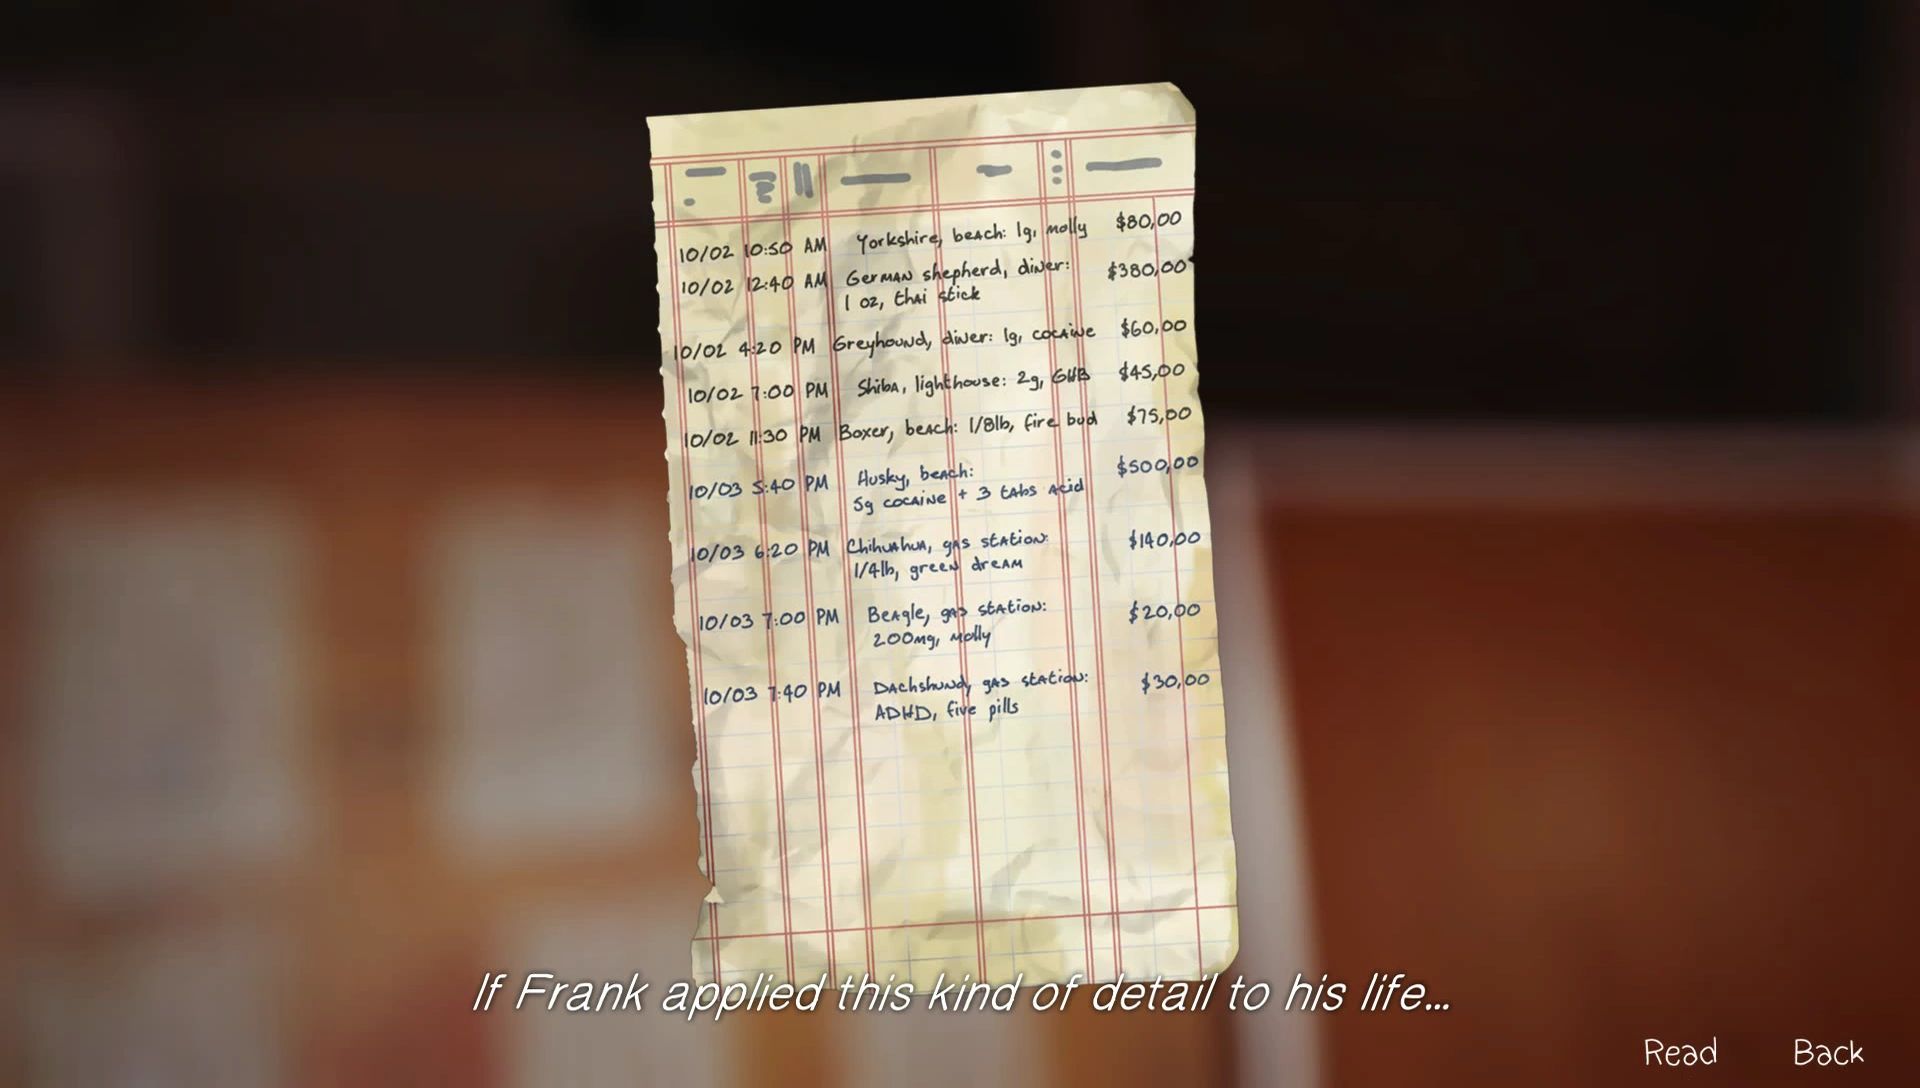 10/02 10:50 AM Yorkshire, beach: 1g, molly $80,00
10/02 12:40 AM German shepherd, diner: $380,00
1 oz, thai stick
10/02 4:20 PM Greyhound, diner: 1g, cocaine $60,00
10/02 7:00 PM Shiba, lighthouse: 2g, GHB $45,00
10/02 11:30 PM Boxer, beach: 1/8lb, fire bud $75,00
10/03 5:40 PM Husky, beach: $500,00
5g cocaine + 3 tabs acid
10/03 6:20 PM Chihuahua, gas station: $140,00
1/4lb, green dream
10/03 7:00 PM Beagle, gas station: $20,00
200mg, molly
10/03 7:40 PM Dachshund, gas station: $30,00
ADHD, five pills
If Frank applied this kind of detail to his life...
Read Back